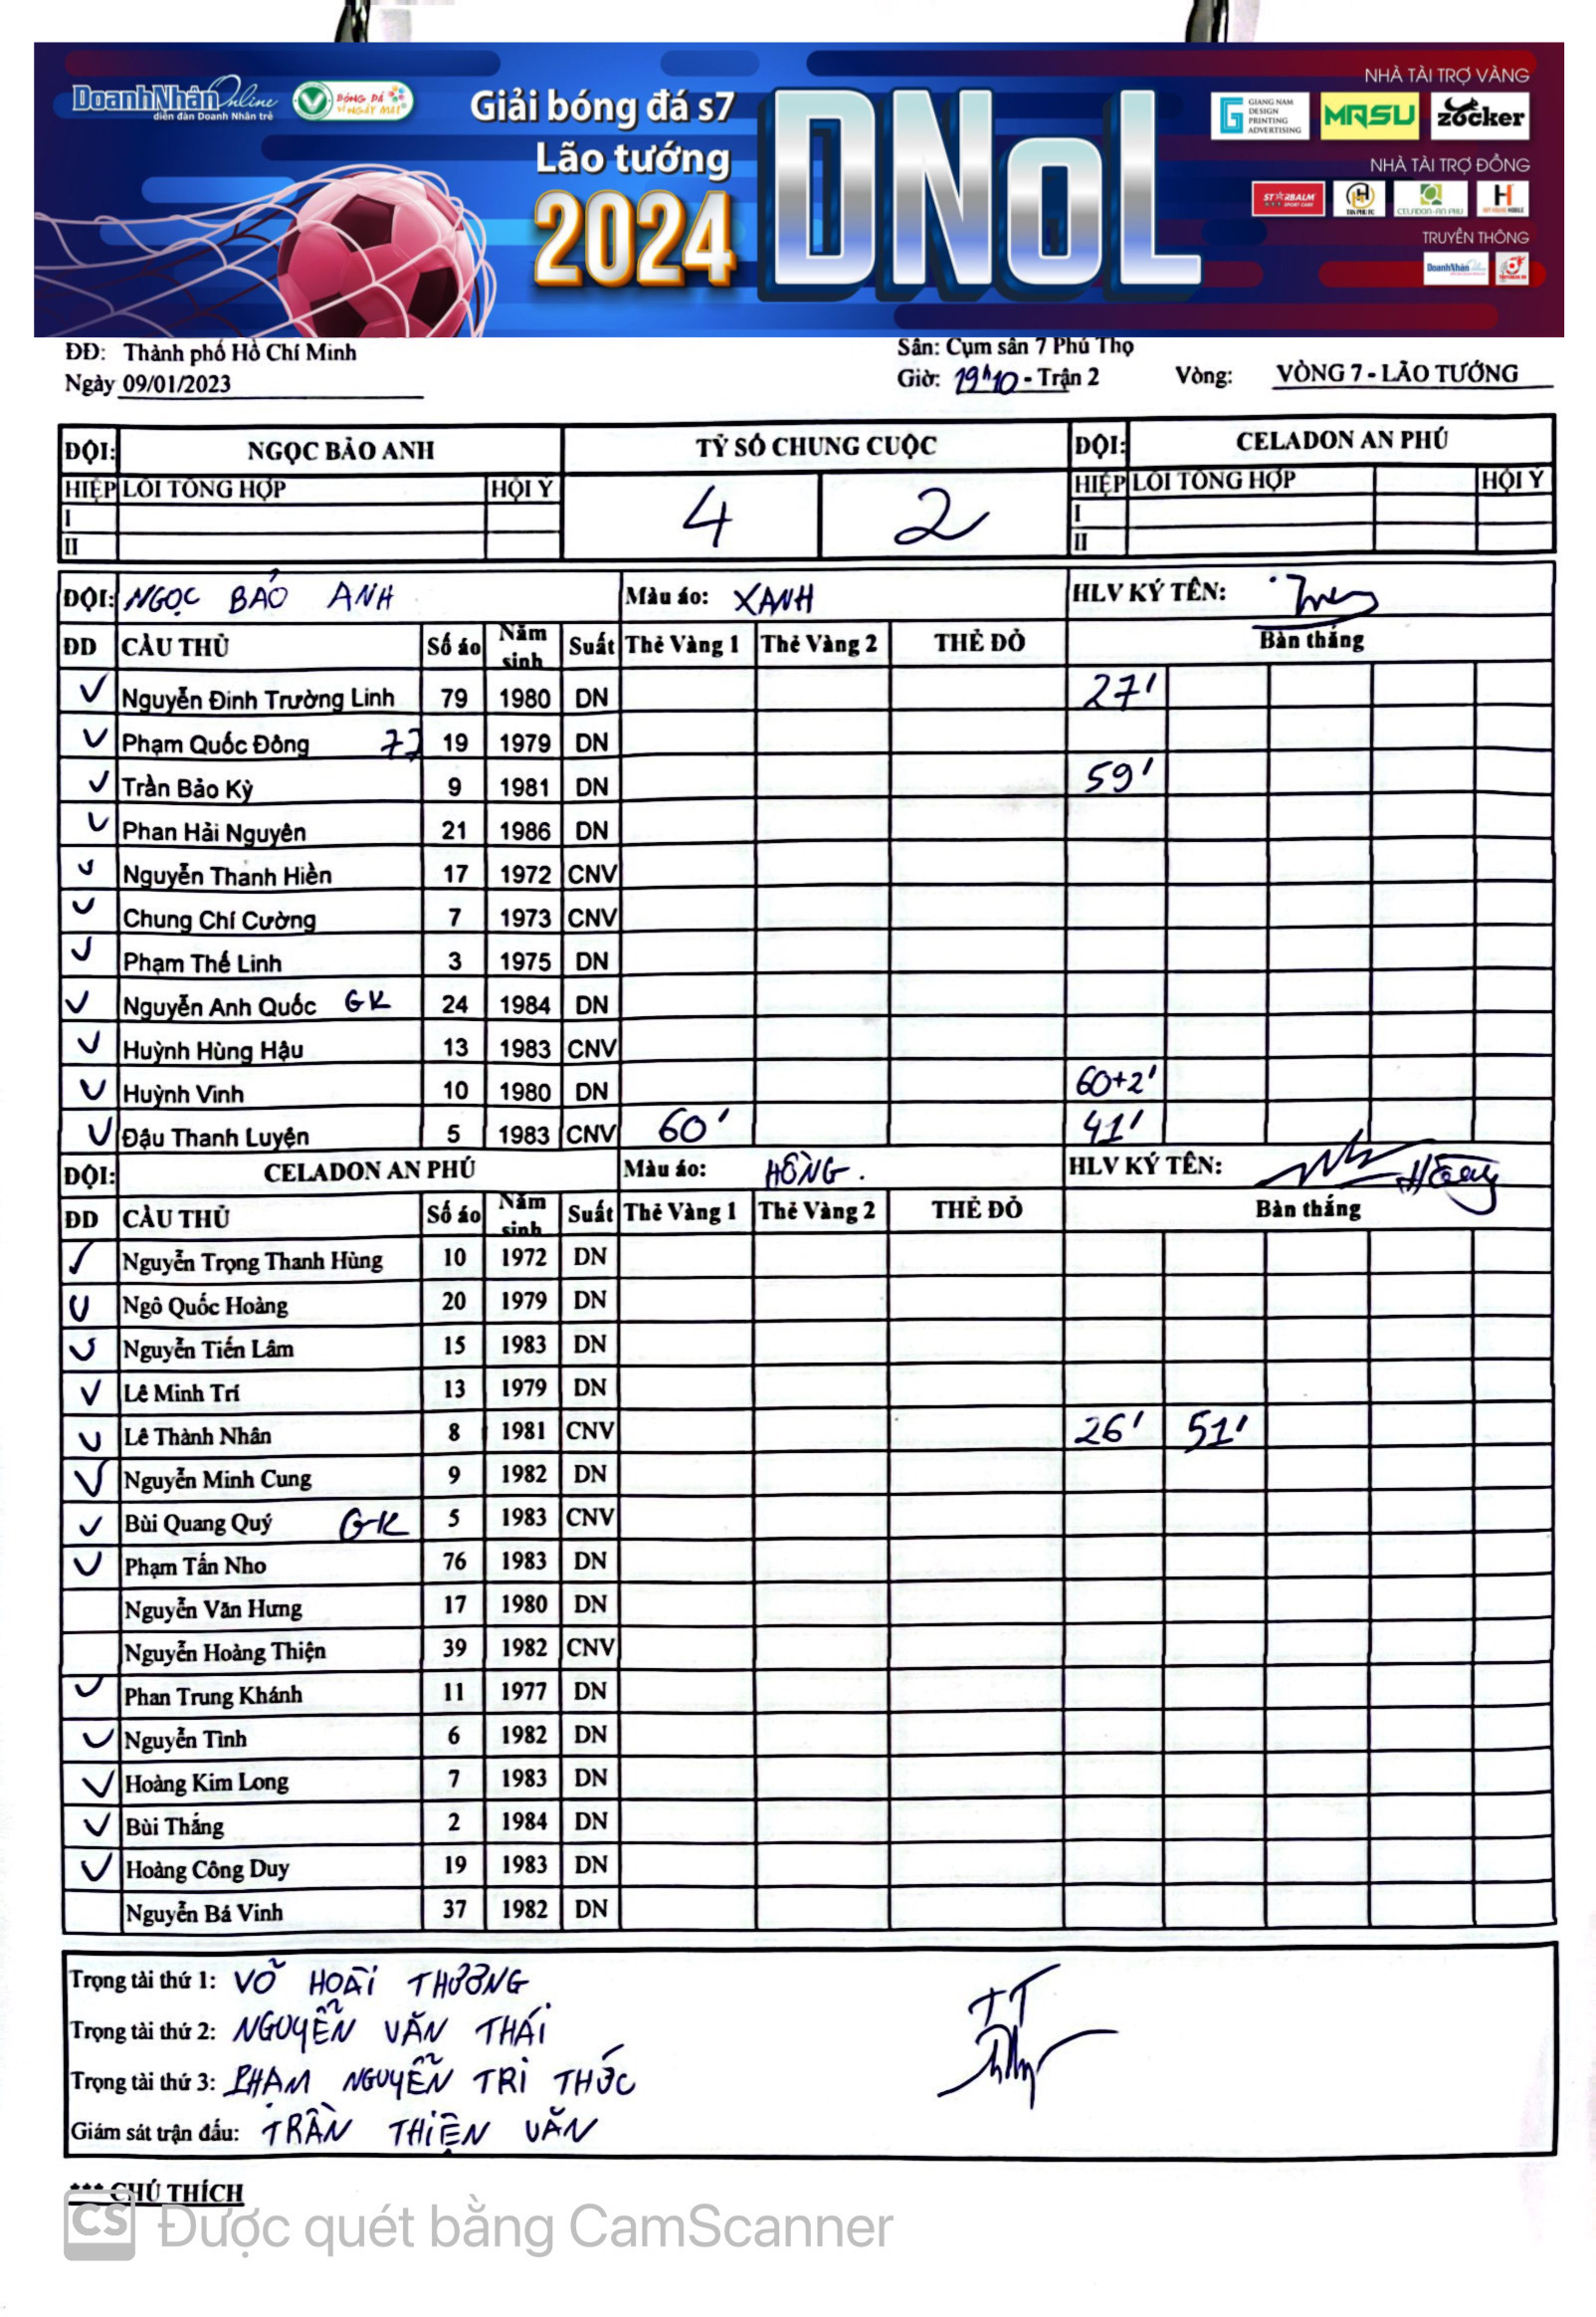 DoanhNhân Online
diễn đàn Doanh Nhân trẻ
BÓNG ĐÁ
VÌ NGÀY MAI
Giải bóng đá s7
Lão tướng
2024
DNoL
NHÀ TÀI TRỢ VÀNG
GIANG NAM
DESIGN
PRINTING
ADVERTISING
MRSU
zocker
NHÀ TÀI TRỢ ĐỒNG
STARBALM
TÂN PHÚ FC
CELADON-AN PHU
TRUYỀN THÔNG
DoanhNhân
ĐĐ: Thành phố Hồ Chí Minh
Sân: Cụm sân 7 Phú Thọ
Ngày 09/01/2023
Giờ: 19h10 - Trận 2 Vòng: VÒNG 7 - LÃO TƯỚNG
ĐỘI: NGỌC BẢO ANH TỶ SỐ CHUNG CUỘC ĐỘI: CELADON AN PHÚ
HIỆP LỖI TỔNG HỢP HỘI Ý 4 2 HIỆP LỖI TỔNG HỢP HỘI Ý
I I
II II
ĐỘI: NGỌC BẢO ANH Màu áo: XANH HLV KÝ TÊN:
ĐD CẦU THỦ Số áo Năm sinh Suất Thẻ Vàng 1 Thẻ Vàng 2 THẺ ĐỎ Bàn thắng
Nguyễn Đinh Trường Linh 79 1980 DN 27'
Phạm Quốc Đông 77 19 1979 DN
Trần Bảo Kỳ 9 1981 DN 59'
Phan Hải Nguyên 21 1986 DN
Nguyễn Thanh Hiền 17 1972 CNV
Chung Chí Cường 7 1973 CNV
Phạm Thế Linh 3 1975 DN
Nguyễn Anh Quốc GK 24 1984 DN
Huỳnh Hùng Hậu 13 1983 CNV
Huỳnh Vinh 10 1980 DN 60+2'
Đậu Thanh Luyện 5 1983 CNV 60' 41'
ĐỘI: CELADON AN PHÚ Màu áo: HỒNG. HLV KÝ TÊN:
ĐD CẦU THỦ Số áo Năm sinh Suất Thẻ Vàng 1 Thẻ Vàng 2 THẺ ĐỎ Bàn thắng
Nguyễn Trọng Thanh Hùng 10 1972 DN
Ngô Quốc Hoàng 20 1979 DN
Nguyễn Tiến Lâm 15 1983 DN
Lê Minh Trí 13 1979 DN
Lê Thành Nhân 8 1981 CNV 26' 51'
Nguyễn Minh Cung 9 1982 DN
Bùi Quang Quý GK 5 1983 CNV
Phạm Tấn Nho 76 1983 DN
Nguyễn Văn Hưng 17 1980 DN
Nguyễn Hoàng Thiện 39 1982 CNV
Phan Trung Khánh 11 1977 DN
Nguyễn Tình 6 1982 DN
Hoàng Kim Long 7 1983 DN
Bùi Thắng 2 1984 DN
Hoàng Công Duy 19 1983 DN
Nguyễn Bá Vinh 37 1982 DN
Trọng tài thứ 1: VÕ HOÀI THƯƠNG
Trọng tài thứ 2: NGUYỄN VĂN THÁI
Trọng tài thứ 3: PHẠM NGUYỄN TRI THỨC
Giám sát trận đấu: TRẦN THIỆN VĂN
*** CHÚ THÍCH
CS Được quét bằng CamScanner